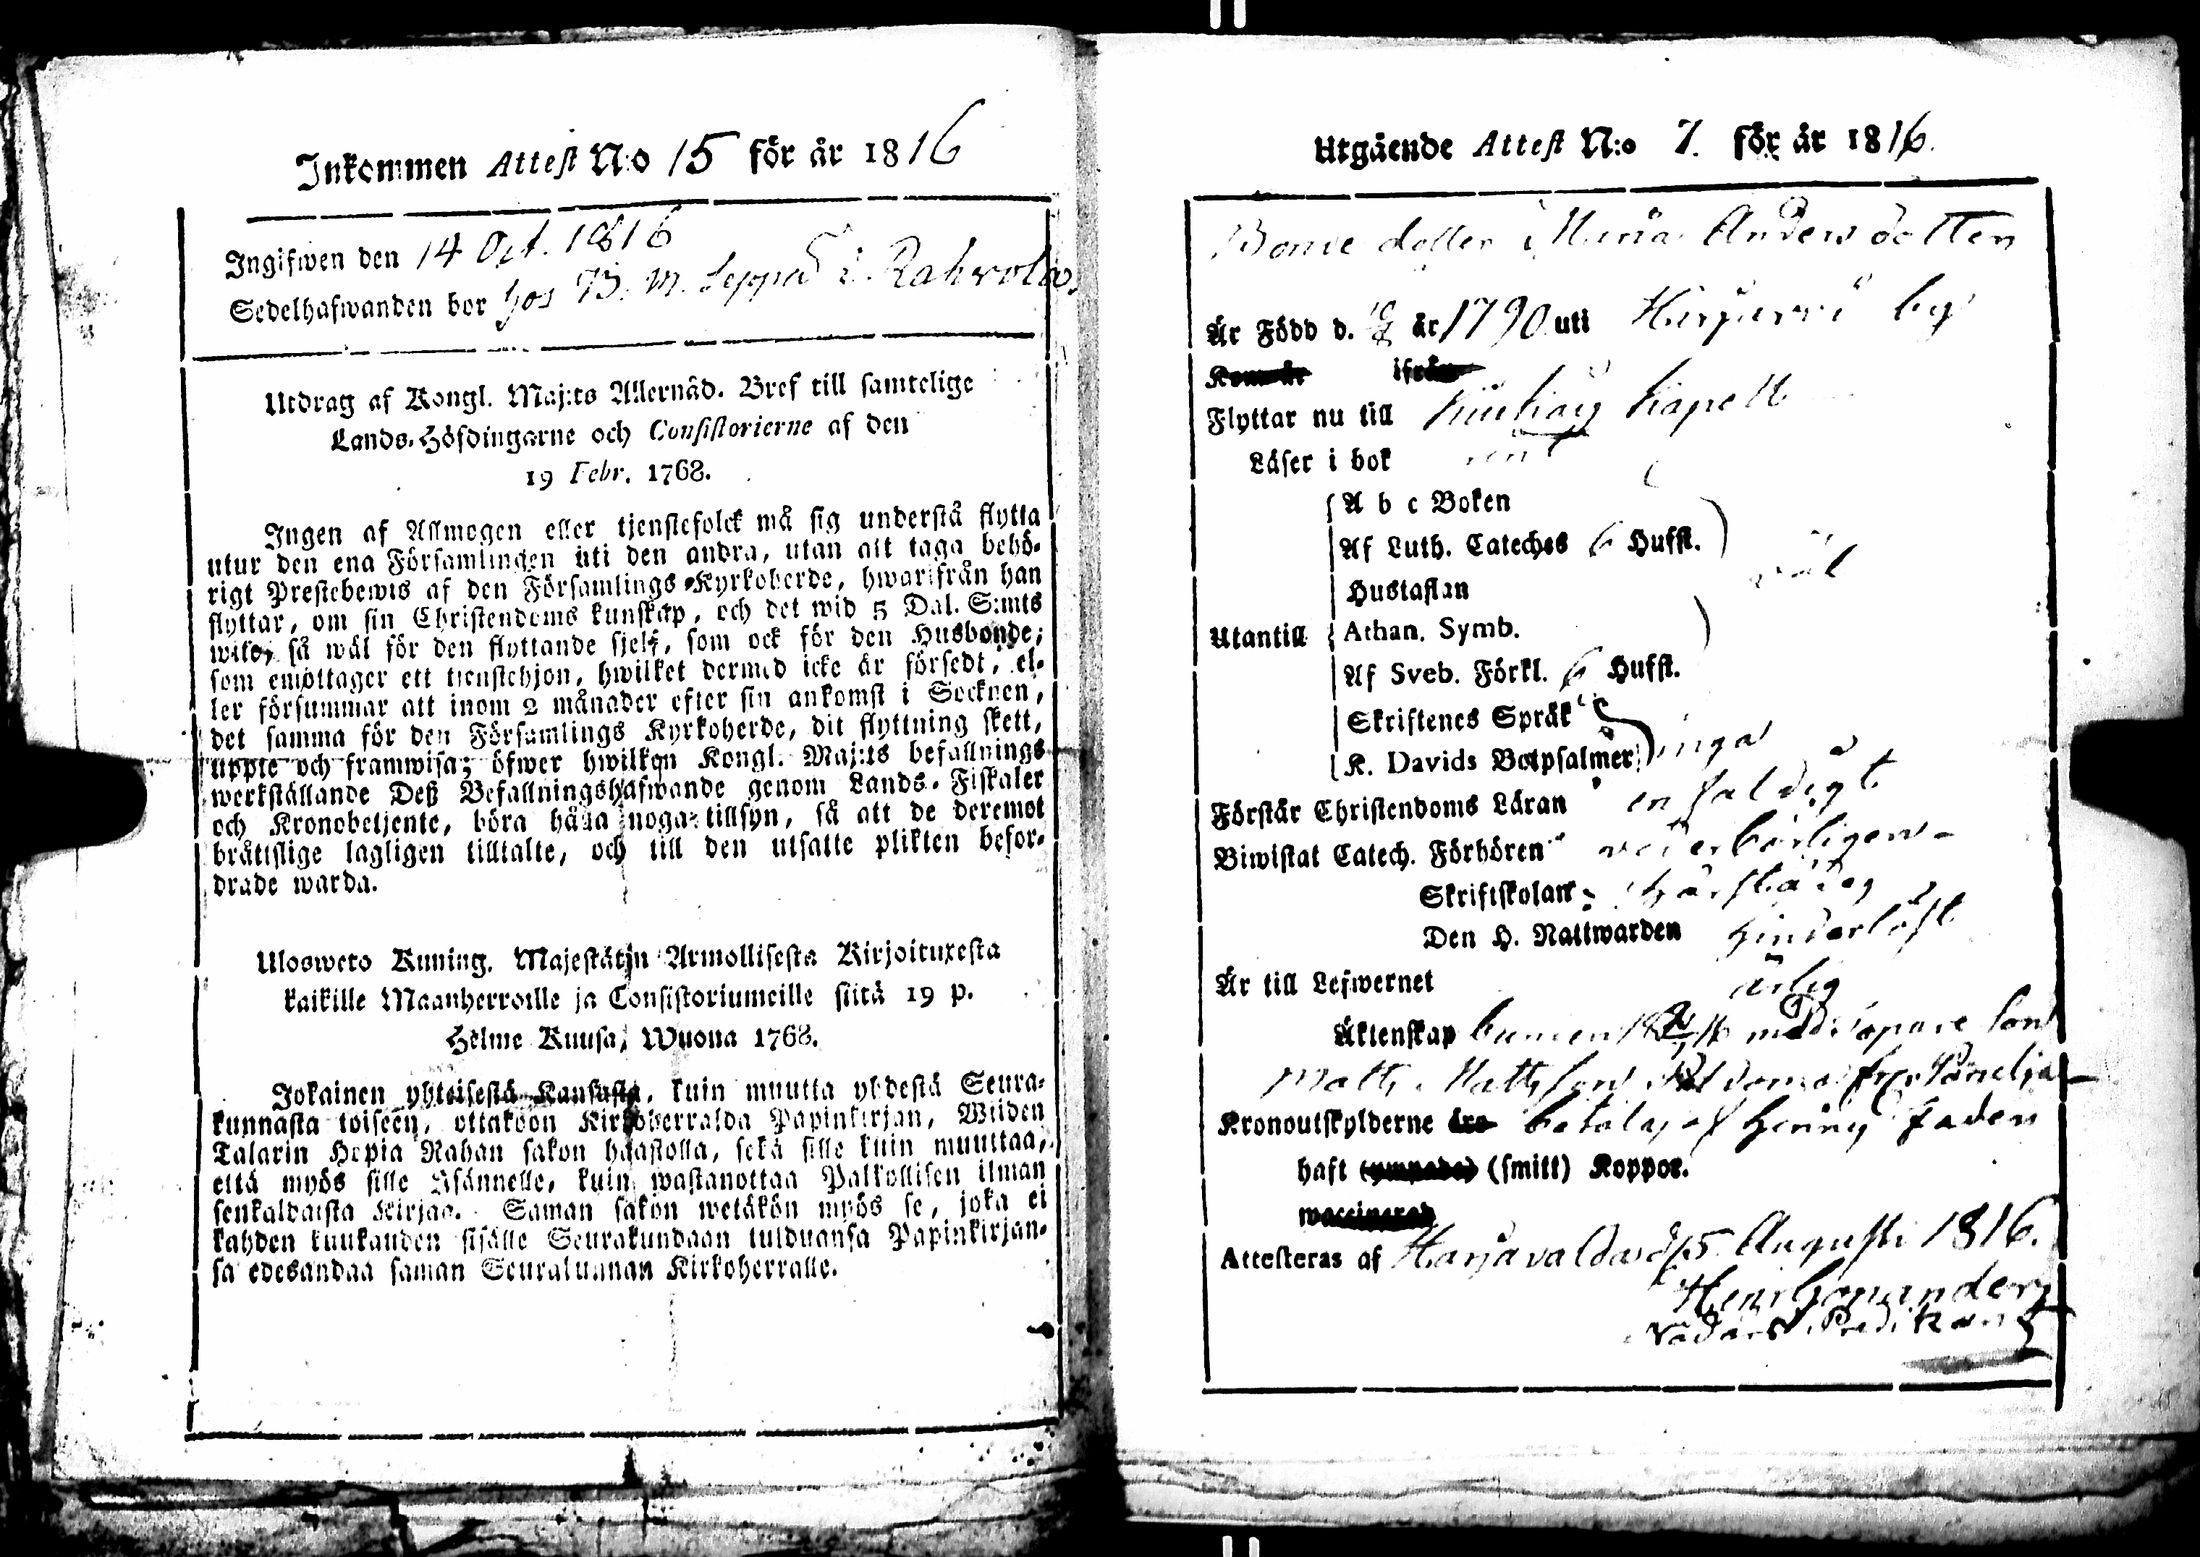 Inkommen Attest N:o 15 för år 1816
Ingifwen den 14 Oct. 1816
Sedelhafwanden bor hos B. M. Seppä i Rahvola.
Utdrag af Kongl. Maj:ts Allernåd. Bref till samtelige
Lands-Höfdingarne och Consistorierne af den
19 Febr. 1768.
Ingen af Allmogen eller tjenstefolck må sig understå flytta
utur den ena Församlingen uti den andra, utan att taga behö-
rigt Prestebewis af den Församlings-Kyrkoherde, hwarifrån han
flyttar, om sin Christendoms kunskap, och det wid 5 Dal. S:mts
wite, så wäl för den flyttande sjelf, som ock för den Husbonde,
som emottager ett tienstehjon, hwilket dermed icke är försedt, el-
ler försummar att inom 2 månader efter sin ankomst i Socknen,
det samma för den Församlings Kyrkoherde, dit flyttning skett,
uppte och framwisa; öfwer hwilken Kongl. Maj:ts befallnings
werkställande Deß Befallningshafwande genom Lands-Fiskaler
och Kronobetjente, böra hålla noga tillsyn, så att de deremot
bråttslige lagligen tilltalte, och till den utsatte plikten befor-
drade warda.
Ulosweto Kuning. Majestätin Armollisesta Kirjoituxesta
kaikille Maanherroille ja Consistoriumeille siitä 19 p.
Helme Kuusa, Wuona 1768.
Jokainen yhteisestä Kansasta, kuin muutta yhdestä Seura-
kunnasta toiseen, ottakoon Kirkoherralda Papinkirjan, Wiiden
Talarin Hopia Rahan sakon haastolla, sekä sille kuin muuttaa,
että myös sille Isännelle, kuin wastanottaa Palkollisen ilman
senkaldaista Kirjaa. Saman sakon wetäkön myös se, joka ei
kahden kuukauden sisälle Seurakundaan tulduansa Papinkirjan-
sa edesandaa saman Seurakunnan Kirkoherralle.
Utgående Attest N:o 7. för år 1816.
Bonde dotter Maria Anders dotter
Är Född d. år 1790 uti Hirjärvi by
Kom år ifrån
Flyttar nu till Kapell
Läser i bok rent
A b c Boken
Af Luth. Cateches 6 Hufst.
Hustaflan
väl
Utantill
Athan. Symb.
Af Sveb. Förkl. 6 Hufst.
Skriftenes Språk
K. Davids Botpsalmer inga
Förstår Christendoms Läran enfaldigt
Biwistat Catech. Förhören vederbörligen
Skriftskolan
Den H. Nattwarden hinderlöst
Är till Lefwernet ärlig
Äktenskap med Sopare Son
Matts Mattsson
Kronoutskylderne äro betalas af hennes fader
haft (ympade) (smitt) Koppor.
waccinerad
Attesteras af Harjavalda d. 15 Augusti 1816.
Henr
Nådårs Predikant